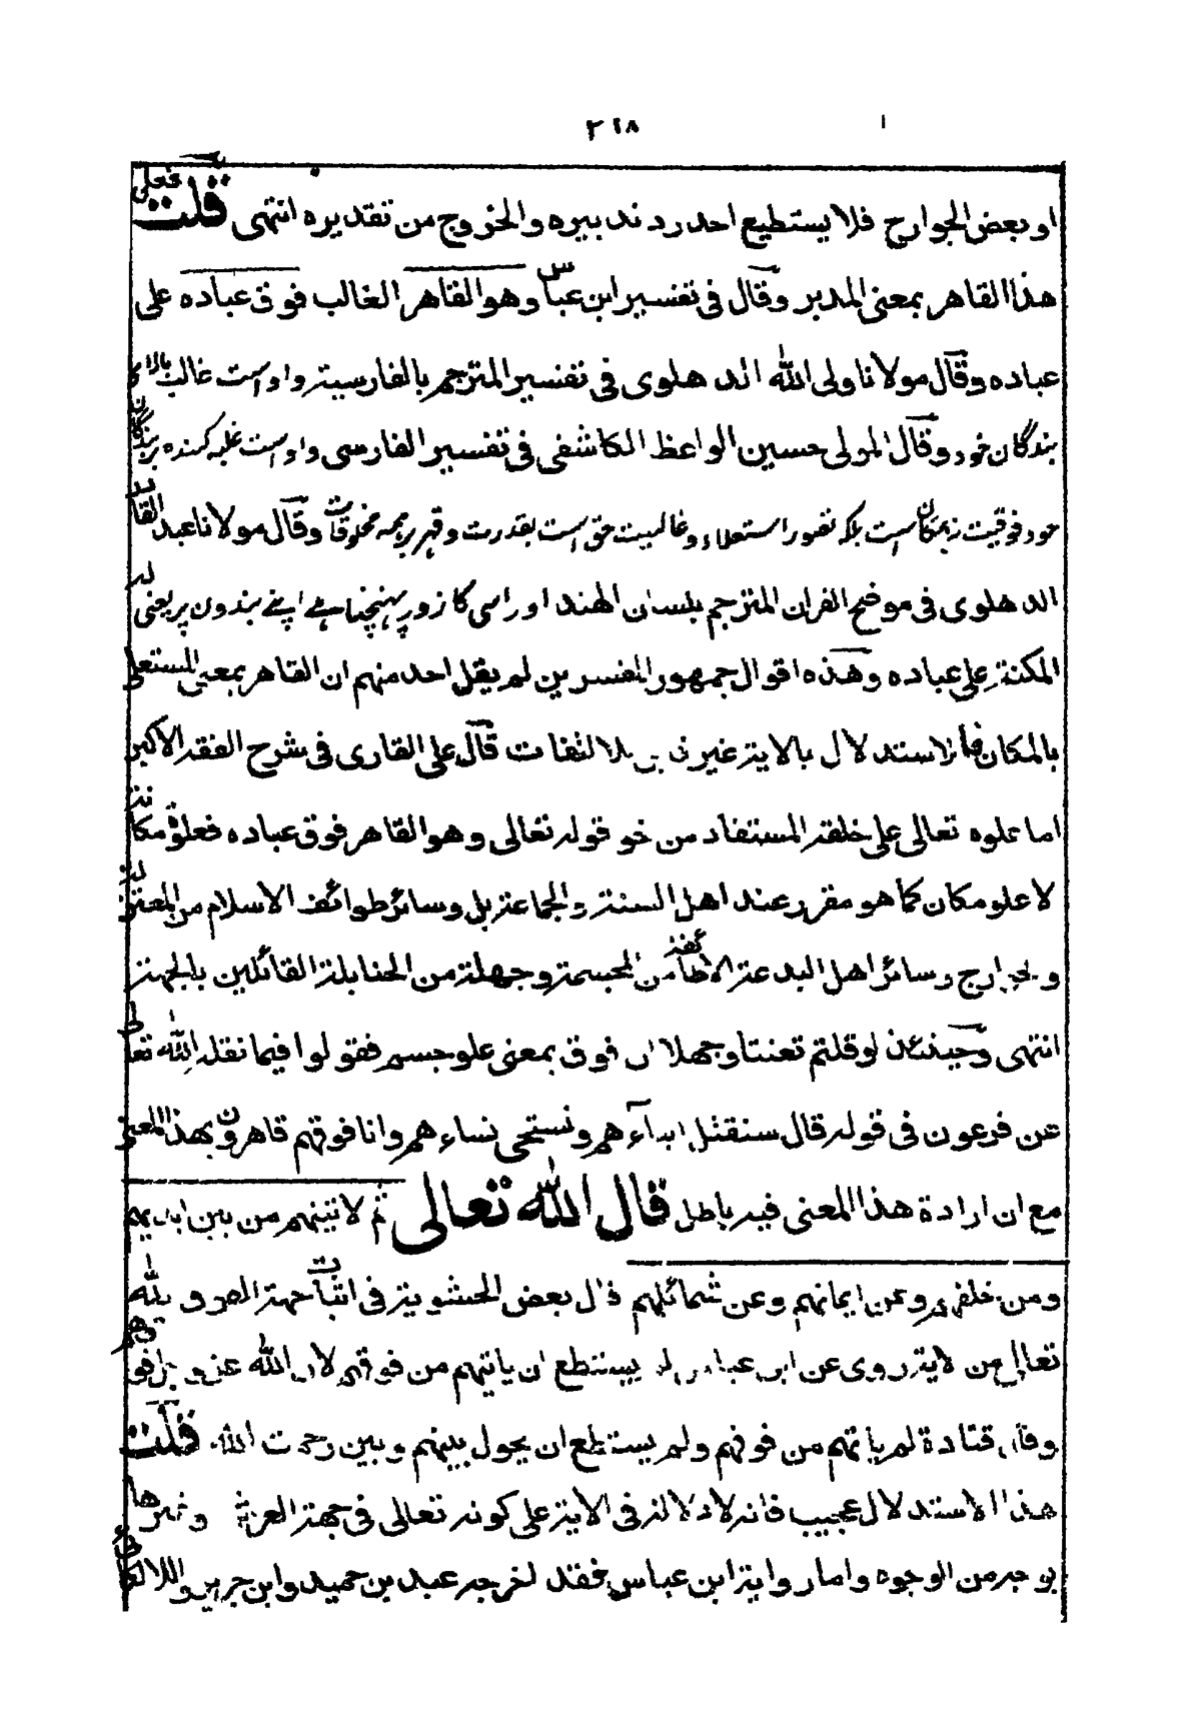 ٢١٨
او بعض الجوارح فلا يستطيع احد رد تدبيره والخروج من تقديره انتهى قلت فعلى
هذا القاهر بمعنى المدبر وقال فى تفسير ابن عباس وهو القاهر الغالب فوق عباده على
عباده وقال مولانا ولى الله الدهلوى فى تفسير المترجم بالفارسية واوست غالب بالاى
بندگان خود وقال المولى حسين الواعظ الكاشفى فى تفسير الفارسى واوست غلبه كننده بر بندگان
خود فوقيت نه بمكان است بلكه تصور استعلاء و غالبيت حق است بقدرت و قهر بر همه مخلوقات وقال مولانا عبد القادر
الدهلوى فى موضح القران المترجم بلسان الهند اور اسى كا زور پہنچتا ہے اپنے بندون پر يعنى له
المكنة على عباده وهذه اقوال جمهور المفسرين لم يقل احد منهم ان القاهر بمعنى المستعلى
بالمكان فالاستدلال بالاية غير بلا التفات قال على القارى فى شرح الفقه الاكبر
اما علوه تعالى على خلقه المستفاد من نحو قوله تعالى وهو القاهر فوق عباده فعلو مكانة
لا علو مكان كما هو مقرر عند اهل السنة والجماعة بل وسائر طوائف الاسلام من المعتزلة
والخوارج وسائر اهل البدعة الا طائفة من المجسمة وجهلة من الحنابلة القائلين بالجهة
انتهى وحينئذ لو قلتم تعنتا وجهلا ان فوق بمعنى علو جسم فقولوا فيما نقل الله تعالى
عن فرعون فى قوله قال سنقتل ابناءهم ونستحى نساءهم وانا فوقهم قاهرون بهذا المعنى
مع ان ارادة هذا المعنى فيه باطل قال الله تعالى ثم لاتينهم من بين ايديهم
ومن خلفهم وعن ايمانهم وعن شمائلهم قال بعض الحشوية فى اثبات جهة الفوق لله
تعالى من الاية روى عن ابن عباس لم يستطع ان ياتيهم من فوقهم لان الله عز وجل فوقهم
وقال قتادة لم ياتهم من فوقهم ولم يستطع ان يحول بينهم وبين رحمت الله قلت
هذا الاستدلال عجيب فانه لا دلالة فى الاية على كونه تعالى فى جهة العرش وغيرها
بوجه من الوجوه واما رواية ابن عباس فقد اخرجه عبد بن حميد وابن جرير واللالكائى